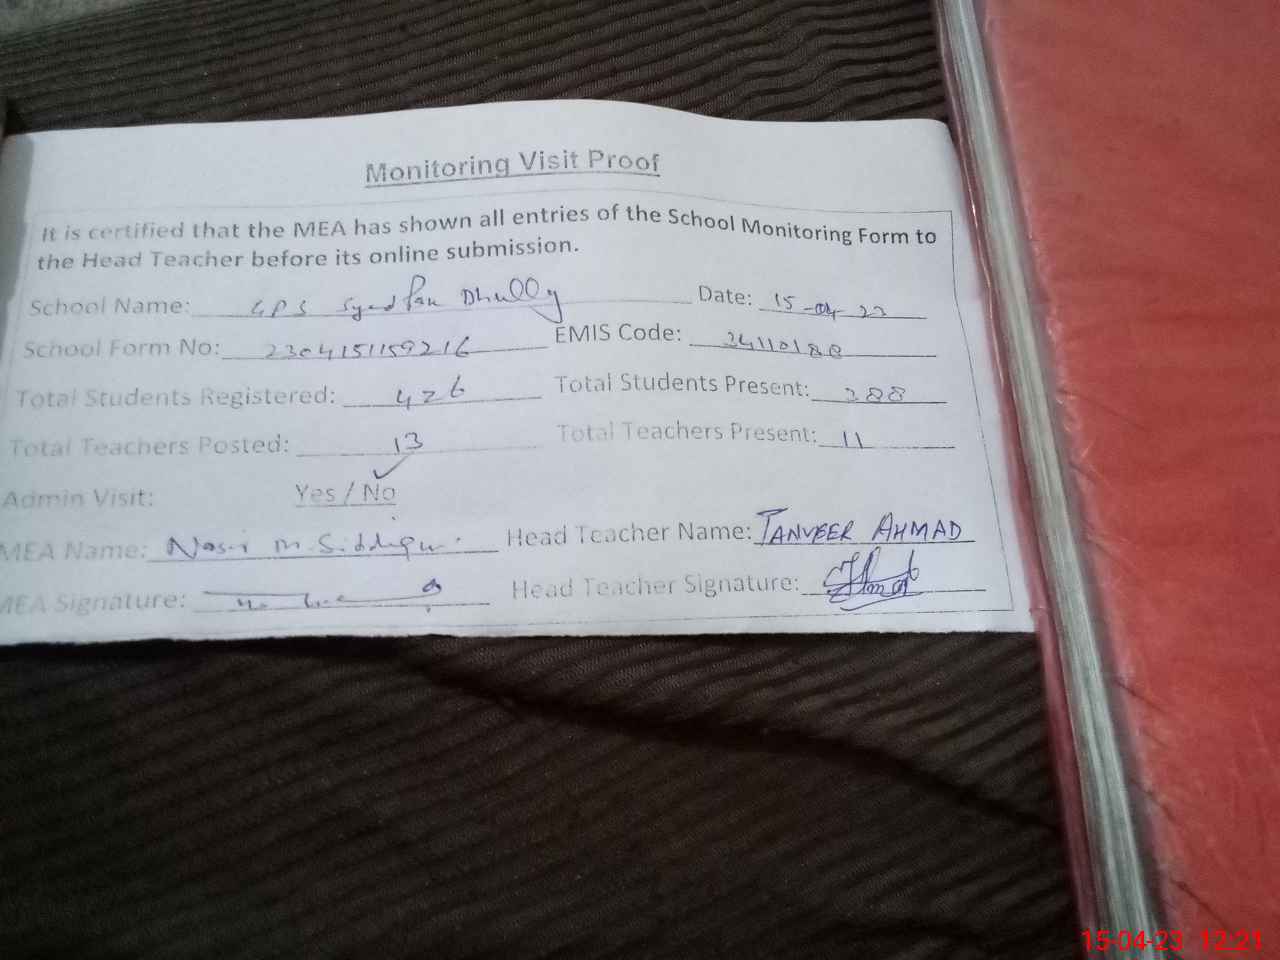 Monitoring Visit Proof
It is certified that the MEA has shown all entries of the School Monitoring Form to
the Head Teacher before its online submission.
School Name: GPS Syed Pan Dhully Date: 15-04-23
School Form No: 2304151159216 EMIS Code: 34110188
Total Students Registered: 426 Total Students Present: 288
Total Teachers Posted: 13 Total Teachers Present: 11
Admin Visit: Yes / No
MEA Name: M. Siddiqui Head Teacher Name: TANVEER AHMAD
MEA Signature: Head Teacher Signature:
15-04-23 12:21